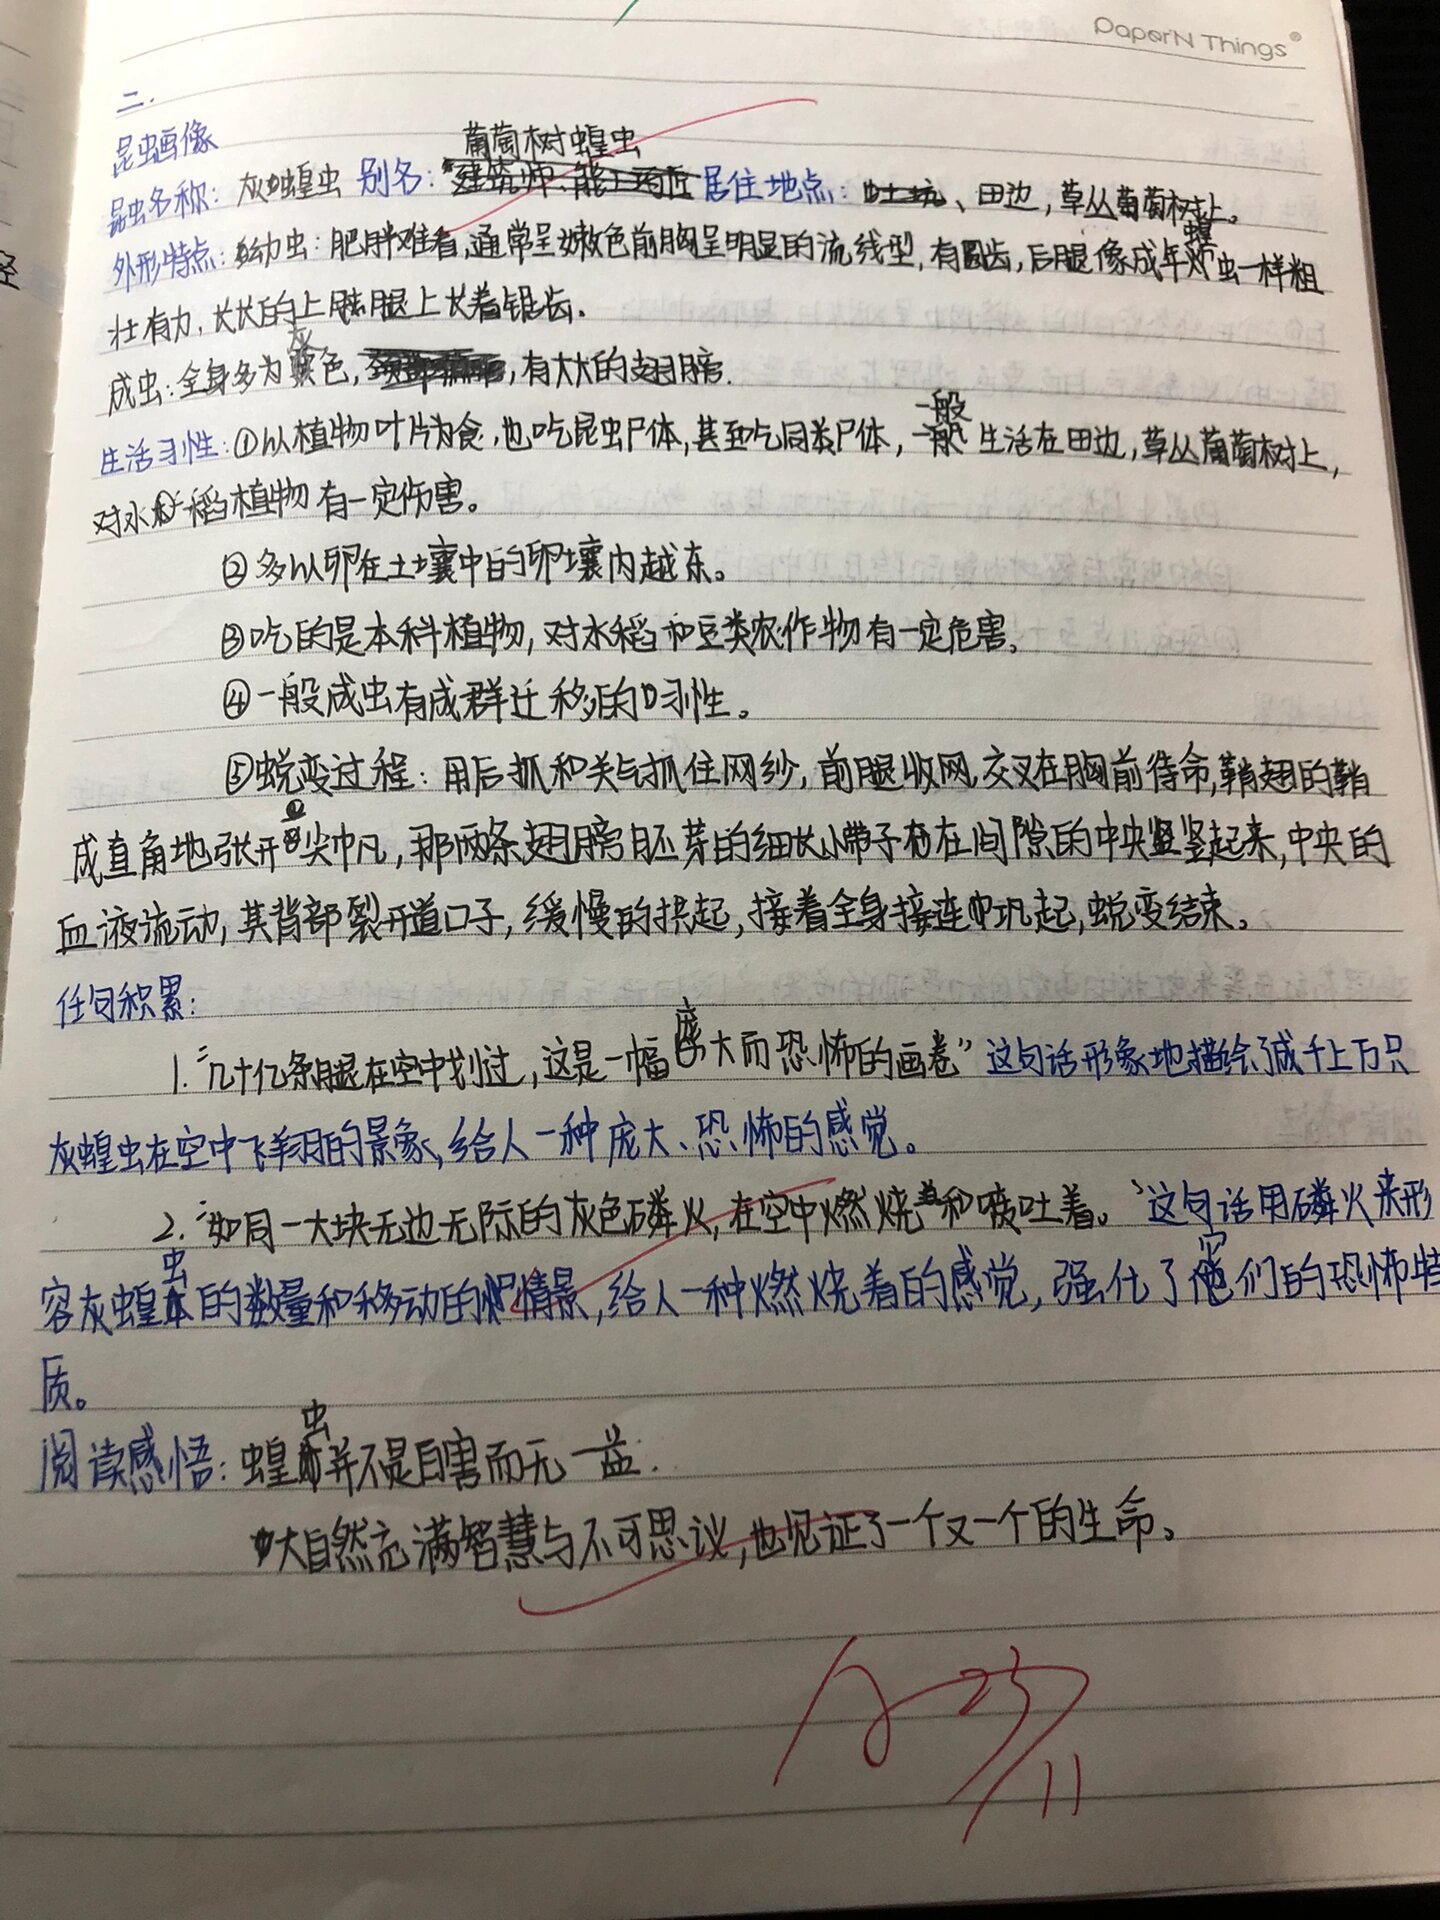 PaperN Things
二.
昆虫画像
昆虫名称：灰蝗虫 别名：葡萄树蝗虫 居住地点：、田边，草丛葡萄树上。
外形特点：幼虫：肥胖难看，通常呈嫩色前胸呈明显的流线型，有圆齿，后腿像成年蝗虫一样粗
壮有力，长长的上腿上长着锯齿。
成虫：全身多为灰色，有大大的翅膀.
生活习性：①以植物叶片为食，也吃昆虫尸体，甚至吃同类尸体，一般生活在田边，草丛葡萄树上，
对水稻植物有一定伤害。
②多以卵在土壤中的卵壤内越东。
③吃的是本科植物，对水稻和豆类农作物有一定危害。
④一般成虫有成群迁移的习性。
⑤蜕变过程：用后抓和关节抓住网纱，前腿收网，交叉在胸前待命，鞘翅的鞘
成直角地张开尖帆，那两条翅膀胚芽的细长小带子在间隙的中央竖起来，中央的
血液流动，其背部裂开道口子，缓慢的拱起，接着全身接连巩起，蜕变结束。
佳句积累：
1.“几十亿条腿在空中划过，这是一幅庞大而恐怖的画卷”这句话形象地描绘了成千上万只
灰蝗虫在空中飞翔的景象，给人一种庞大、恐怖的感觉。
2.“如同一大块无边无际的灰色磷火，在空中燃烧和喷吐着。”这句话用磷火来形
容灰蝗虫的数量和移动的情景，给人一种燃烧着的感觉，强化了它们的恐怖特
质。
阅读感悟：蝗虫并不是百害而无一益.
大自然充满智慧与不可思议，也见证了一个又一个的生命。